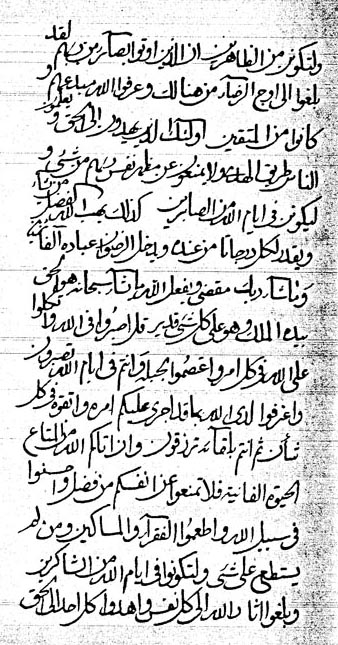 ولتكونن من الظاهرين ان الذين اوتوا الصبر من ربهم لقد
بلغوا الى اوج الرضاء من هنالك وعرفوا الله مبدعهم و
كانوا من المتقين اولئك الذين يهدون الى الحق و يعلمون
الناس طريق الهدى ولا يمنعون عن مظهر نفس ربهم من شيء و
ليكونن في ايام الله من الصابرين كذلك يهب الله الفضل من يشاء
ويقدر لكل درجاتا من عنده ويدخل في الرضوان عباده
وما شاء ربك مقضي ويفعل الله ما شاء سبحانه هو الحق
بيده الملك وهو على كل شيء قدير قل اصبروا في الله وتوكلوا
على الله في كل امر واعتصموا بحبله وانتم في ايام الله تصبرون
واعرفوا لدى الله بما قد اجرى عليكم امره واتقوه في كل
شأن ثم انتم بلقائه ترزقون وان اتاكم الله من المتاع
الحيوة الفانية فلا تمنعوا عن انفسكم من فضل واحسنوا
في سبيل الله واطعموا الفقراء والمساكين ومن لم
يستطع على شيء ولتكونوا في ايام الله من الشاكرين
وبلغوا الله الى كل نفس واهدوا كل احد الى الحق